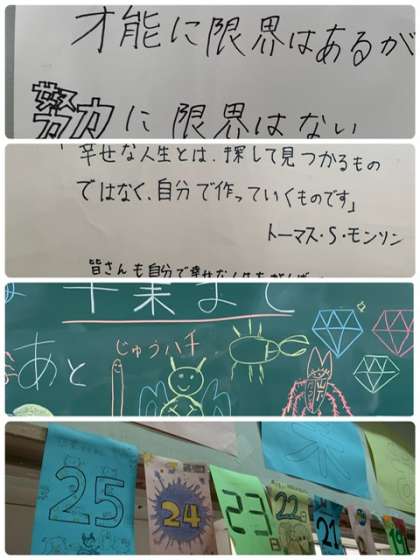 才能に限界はあるが
努力に限界はない
幸せな人生とは、探して見つかるもの
ではなく、自分で作っていくものです」
トーマス・S・モンソン
皆さんも自分で幸せな人生を
卒業まで
あと
じゅうハチ
25
24
23日
22
21
19